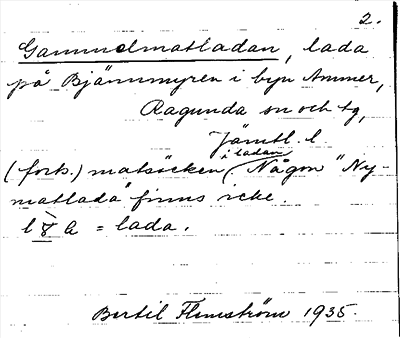 2.
Gammelmatladan, lada
på Bjännmyren i byn Ammer,
Ragunda sn och tg,
Jämtl. l.
(forts.) matsäcken (i ladan) Någon "Ny-
matlada" finns icke.
= lada.
Bertil Flemström 1935.